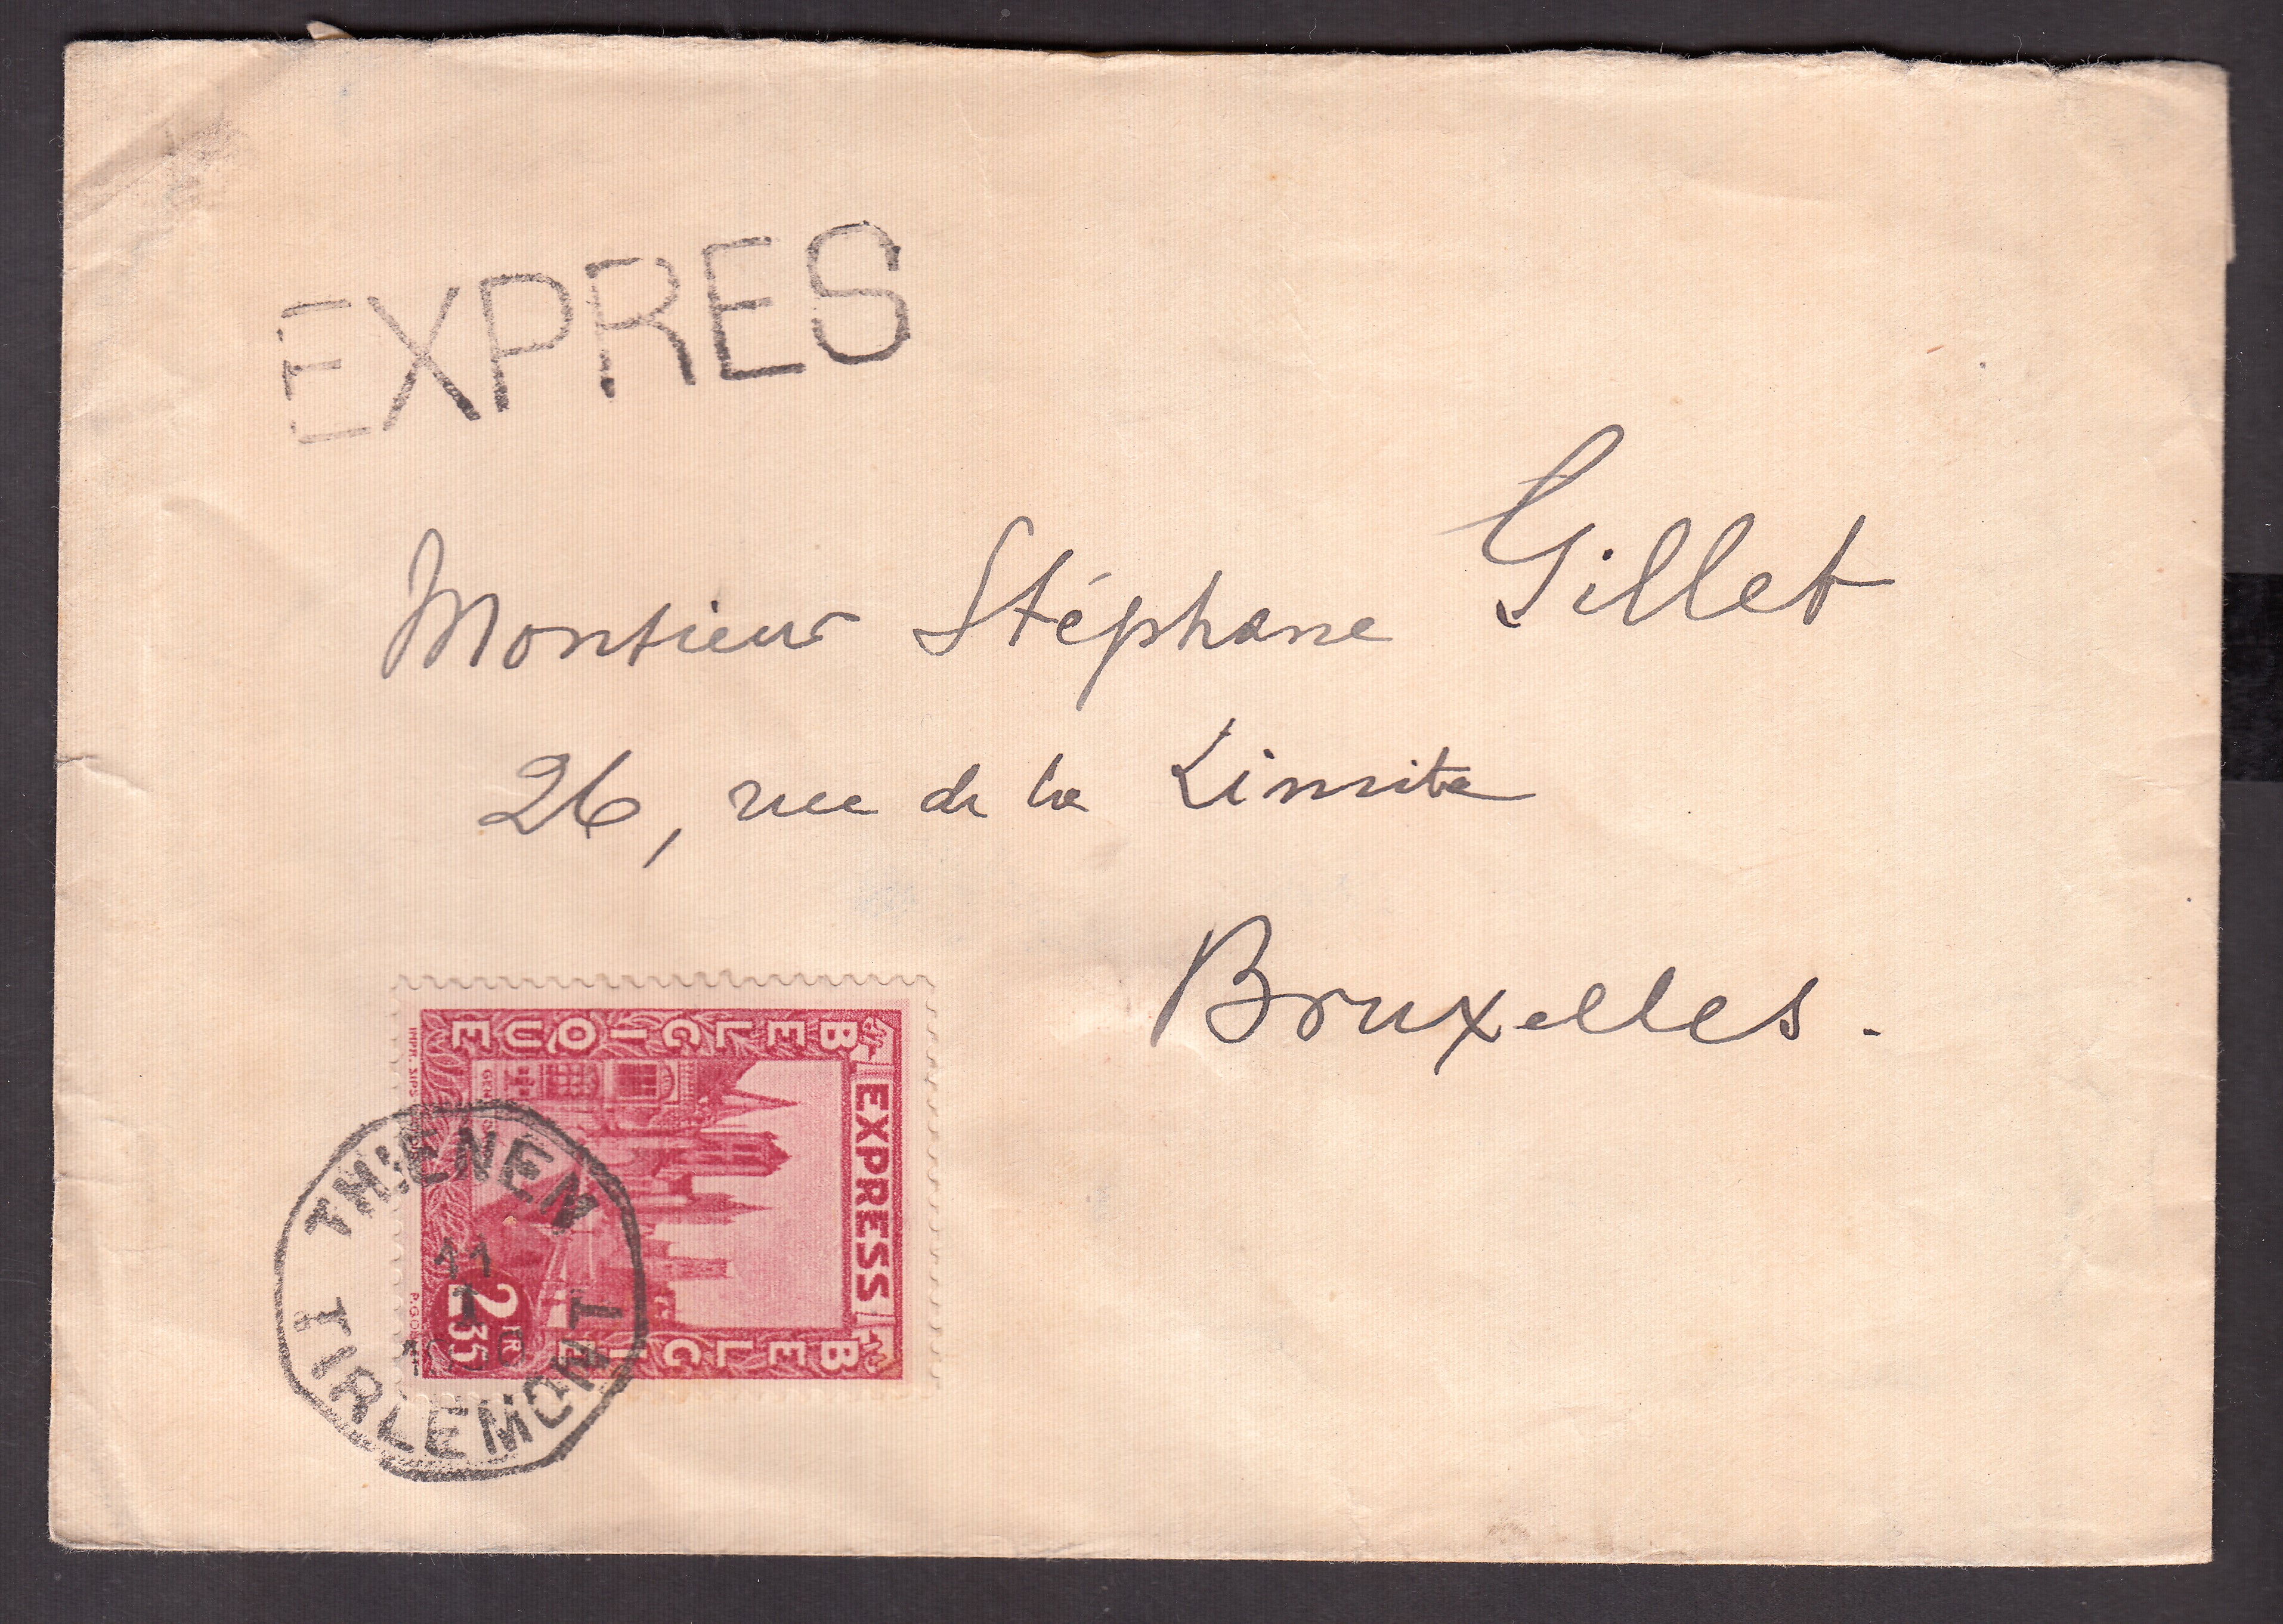 EXPRES
Monsieur Stéphane Gillet
26, rue de la Limite
Bruxelles.
BELGIQUE
EXPRESS
2 FR 35
BELGIË
IMPR.
THIENEN
11
I
TIRLEMONT